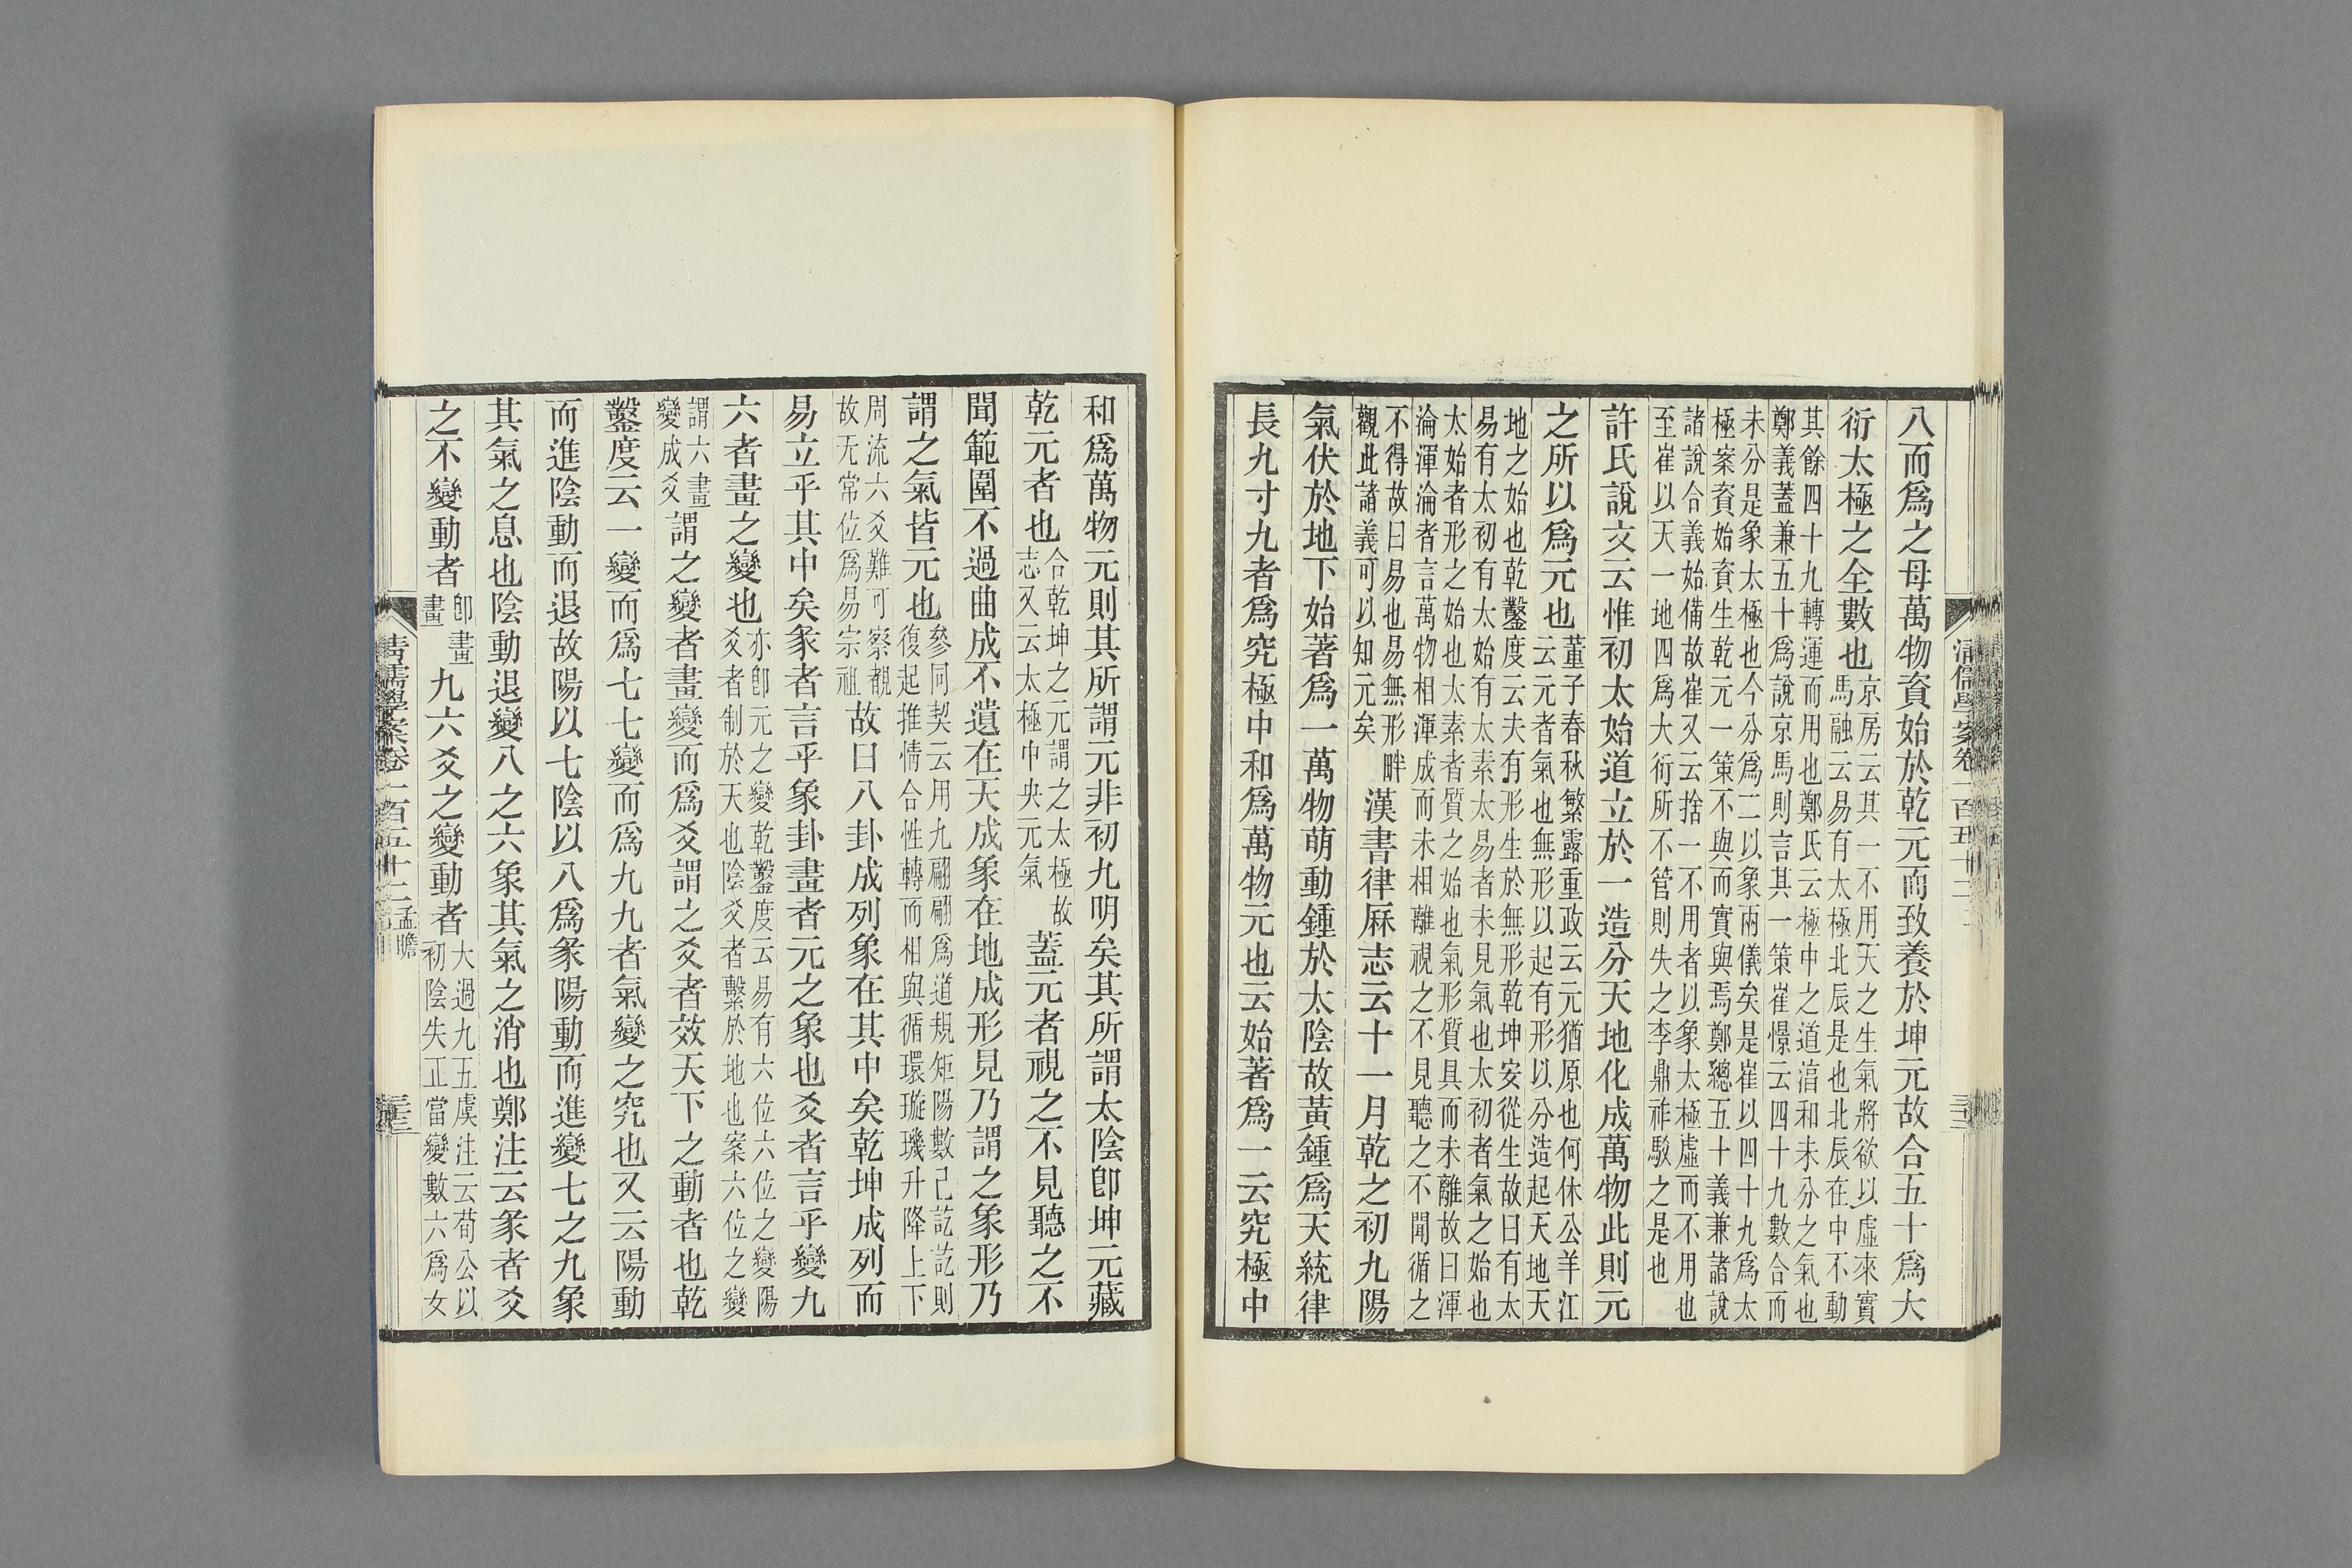 八而爲之母萬物資始於乾元而致養於坤元故合五十爲大
衍太極之全數也京房云其一不用天之生氣將欲以虛來實
馬融云易有太極北辰是也北辰在中不動
其餘四十九轉運而用也鄭氏云極中之道淯和未分之氣也
鄭義蓋兼五十爲說京馬則言其一策崔憬云四十九數合而
未分是象太極也今分爲二以象兩儀矣是崔以四十九爲太
極案資始資生乾元一策不與而實與焉鄭總五十義兼諸說
諸說合義始備故崔又云捨一不用者以象太極虛而不用也
至崔以天一地四爲大衍所不管則失之李鼎祚駁之是也
許氏說文云惟初太始道立於一造分天地化成萬物此則元
之所以爲元也董子春秋繁露重政云元猶原也何休公羊江
云元者氣也無形以起有形以分造起天地天
地之始也乾鑿度云夫有形生於無形乾坤安從生故曰有太
易有太初有太始有太素太易者未見氣也太初者氣之始也
太始者形之始也太素者質之始也氣形質具而未離故曰渾
淪渾淪者言萬物相渾成而未相離視之不見聽之不聞循之
不得故曰易也易無形畔
觀此諸義可以知元矣
漢書律厤志云十一月乾之初九陽
氣伏於地下始著爲一萬物萌動鍾於太陰故黃鍾爲天統律
長九寸九者爲究極中和爲萬物元也云始著爲一云究極中
清儒學案卷一百五十二
三十三
和爲萬物元則其所謂元非初九明矣其所謂太陰卽坤元藏
乾元者也合乾坤之元謂之太極故
志又云太極中央元氣
蓋元者視之不見聽之不
聞範圍不過曲成不遺在天成象在地成形見乃謂之象形乃
謂之氣皆元也參同契云用九翩翩爲道規矩陽數已訖訖則
復起推情合性轉而相與循環璇璣升降上下
周流六爻難可察覩
故无常位爲易宗祖
故曰八卦成列象在其中矣乾坤成列而
易立乎其中矣彖者言乎象卦畫者元之象也爻者言乎變九
六者畫之變也亦卽元之變乾鑿度云易有六位六位之變陽
爻者制於天也陰爻者繫於地也案六位之變
謂六畫
變成爻
謂之變者畫變而爲爻謂之爻者效天下之動者也乾
鑿度云一變而爲七七變而爲九九者氣變之究也又云陽動
而進陰動而退故陽以七陰以八爲彖陽動而進變七之九象
其氣之息也陰動退變八之六象其氣之消也鄭注云彖者爻
之不變動者卽畫
畫
九六爻之變動者大過九五虞注云荀公以
初陰失正當變數六爲女
清儒學案卷一百五十二孟瞻
三十三